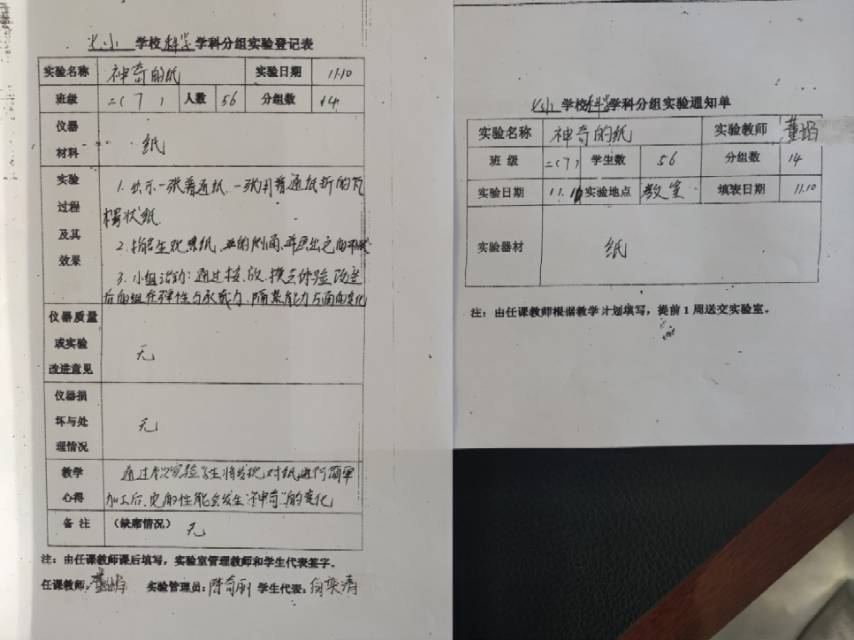 小 学校科学学科分组实验登记表
实验名称 神奇的纸 实验日期 11.10
班级 二(7) 人数 56 分组数 14
仪器
材料 纸
实验
过程
及其
效果
1.出示一张普通纸,一张用普通纸折的瓦
楞状纸
2.指名生观察纸
3.小组活动:通过按、放、摸去体验改变
后的纸在弹性与承载力、隔音能力方面的变化
仪器质量
或实验
改进意见
无
仪器损
坏与处
理情况
无
教学
心得
通过本次实验学生将发现,对纸进行简单
加工后,它的性能会发生“神奇”的变化
备注 (缺席情况) 无
注:由任课教师课后填写,实验室管理教师和学生代表签字。
任课教师: 实验管理员: 学生代表:
小 学校科学学科分组实验通知单
实验名称 神奇的纸 实验教师
班级 二(7) 学生数 56 分组数 14
实验日期 11.10 实验地点 教室 填表日期 11.10
实验器材 纸
注:由任课教师根据教学计划填写,提前1周送交实验室。